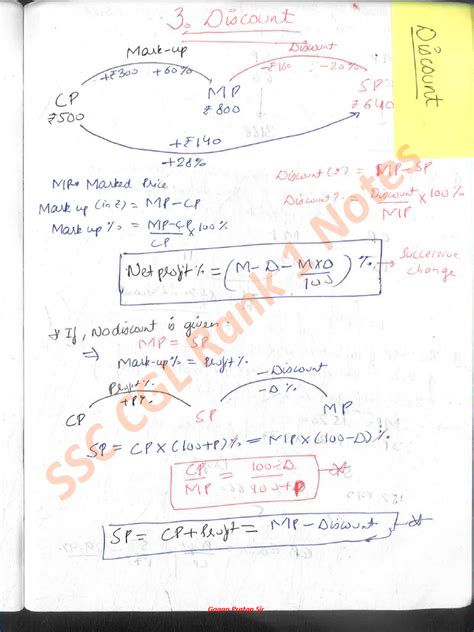 3. Discount
Discount
Mark-up
Discount
+₹300 +60%
-₹160 -20%
CP
₹500
MP
₹800
SP
₹640
+₹140
+28%
MP → Marked Price
Mark up (in ₹) = MP-CP
Mark up % = MP-CP/CP × 100%
Discount (₹) = MP-SP
Discount % = Discount/MP × 100%
Net profit % = (M - D - M×D/100) %
→ Successive change
* If, No discount is given:
⇒ MP = SP
Mark-up% = Profit%
Profit %
+P%
- Discount
-D%
CP
SP
MP
SP = CP×(100+P)% = MP×(100-D)%
CP/MP = 100-D/100+P
SP = CP + Profit = MP - Discount
SSC CGL Rank 1 Notes
Gagan Pratap Sir